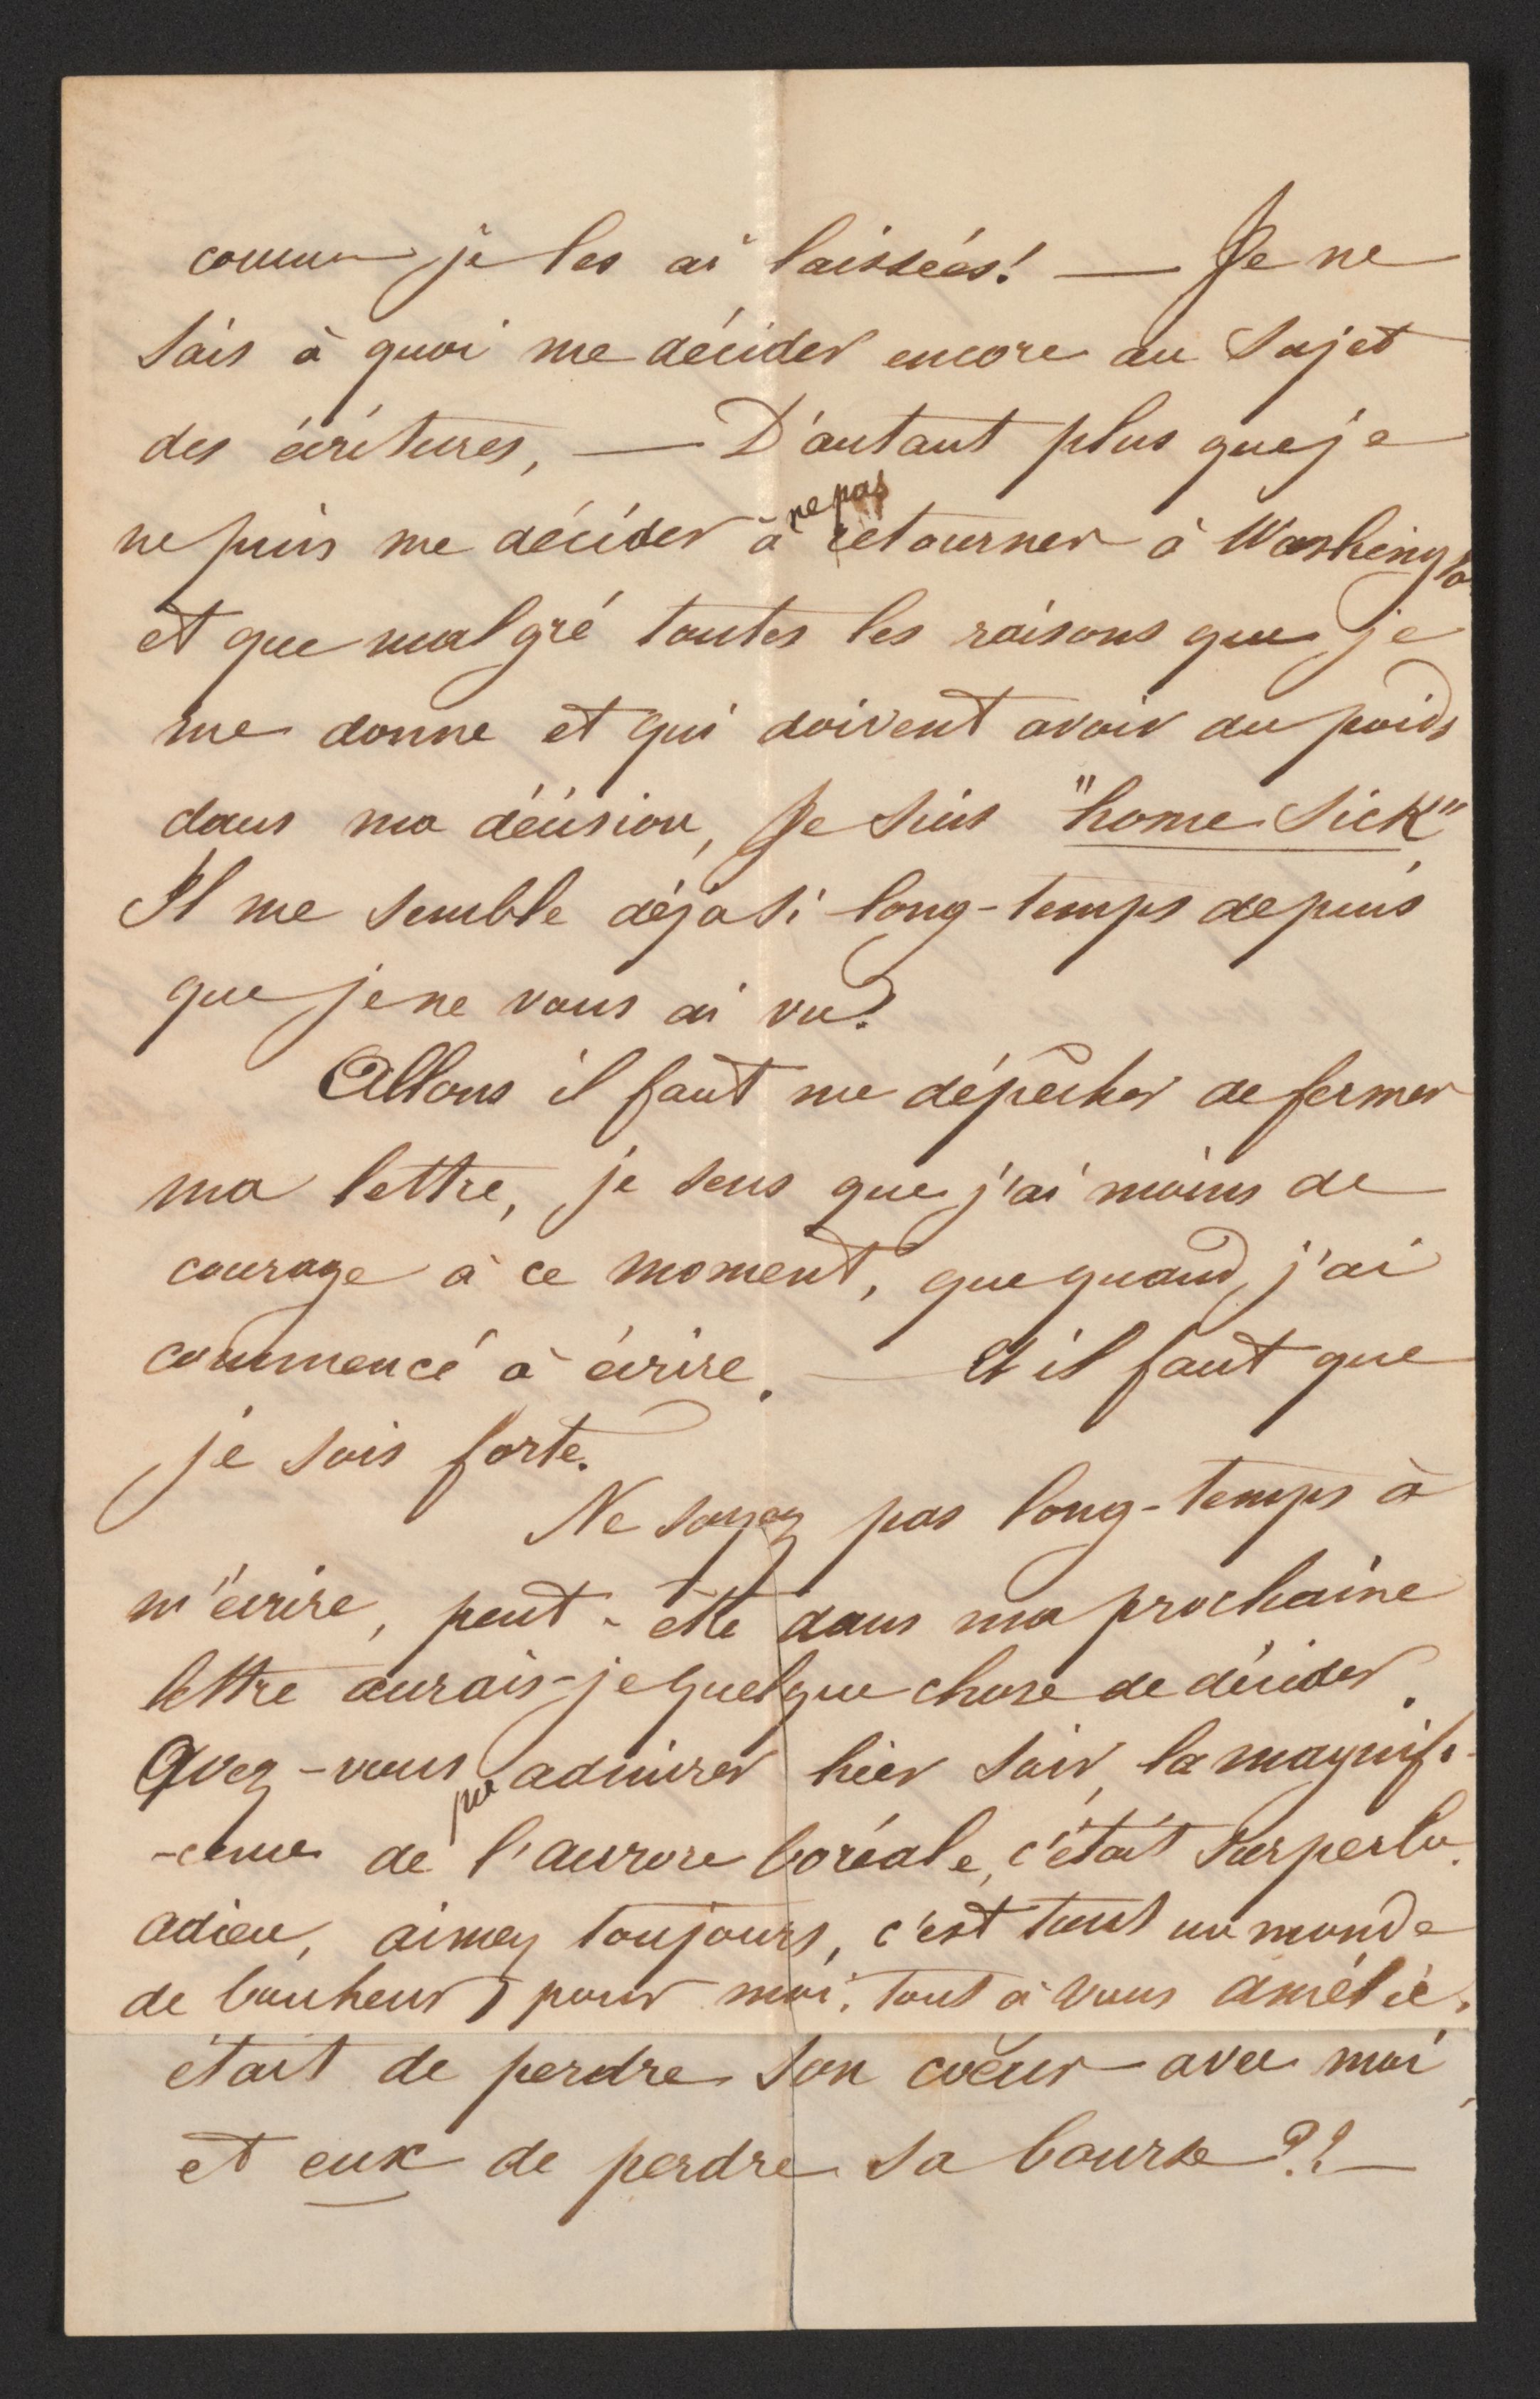 comme je les ai laissées! — Je ne
sais à quoi me décider encore au sujet
des écritures, — D'autant plus que je
ne puis me décider à ne pas retourner à Washington
et que malgré toutes les raisons que je
me donne et qui doivent avoir du poids
dans ma décision, Je suis "home sick"
Il me semble déjà si long-temps depuis
que je ne vous ai vu?
Allons il faut me dépêcher de fermer
ma lettre, je sens que j'ai moins de
courage à ce moment, que quand j'ai
commencé à écrire. — Et il faut que
je sois forte.
Ne soyez pas long-temps à
m'écrire, peut-être dans ma prochaine
lettre aurais-je quelque chose de décider.
Avez-vous pu admirer hier soir, la magnifi-
-cence de l'aurore boréale, c'était
adieu, aimez toujours, c'est tout un monde
de bonheur pour moi. tout à vous Amélie.
était de perdre son coeur avec moi,
et eux de perdre sa bourse?! —